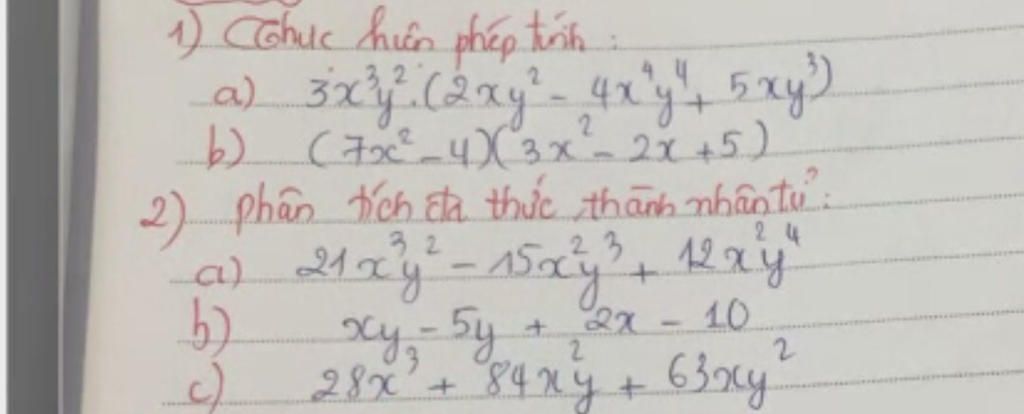 1) Thực hiện phép tính :
a) 3x³y².(2xy² - 4x⁴y⁴ + 5xy³)
b) (7x² - 4)(3x² - 2x + 5)
2) phân tích đa thức thành nhân tử :
a) 21x³y² - 15x²y³ + 12x²y⁴
b) xy - 5y + 2x - 10
c) 28x³ + 84x²y + 63xy²